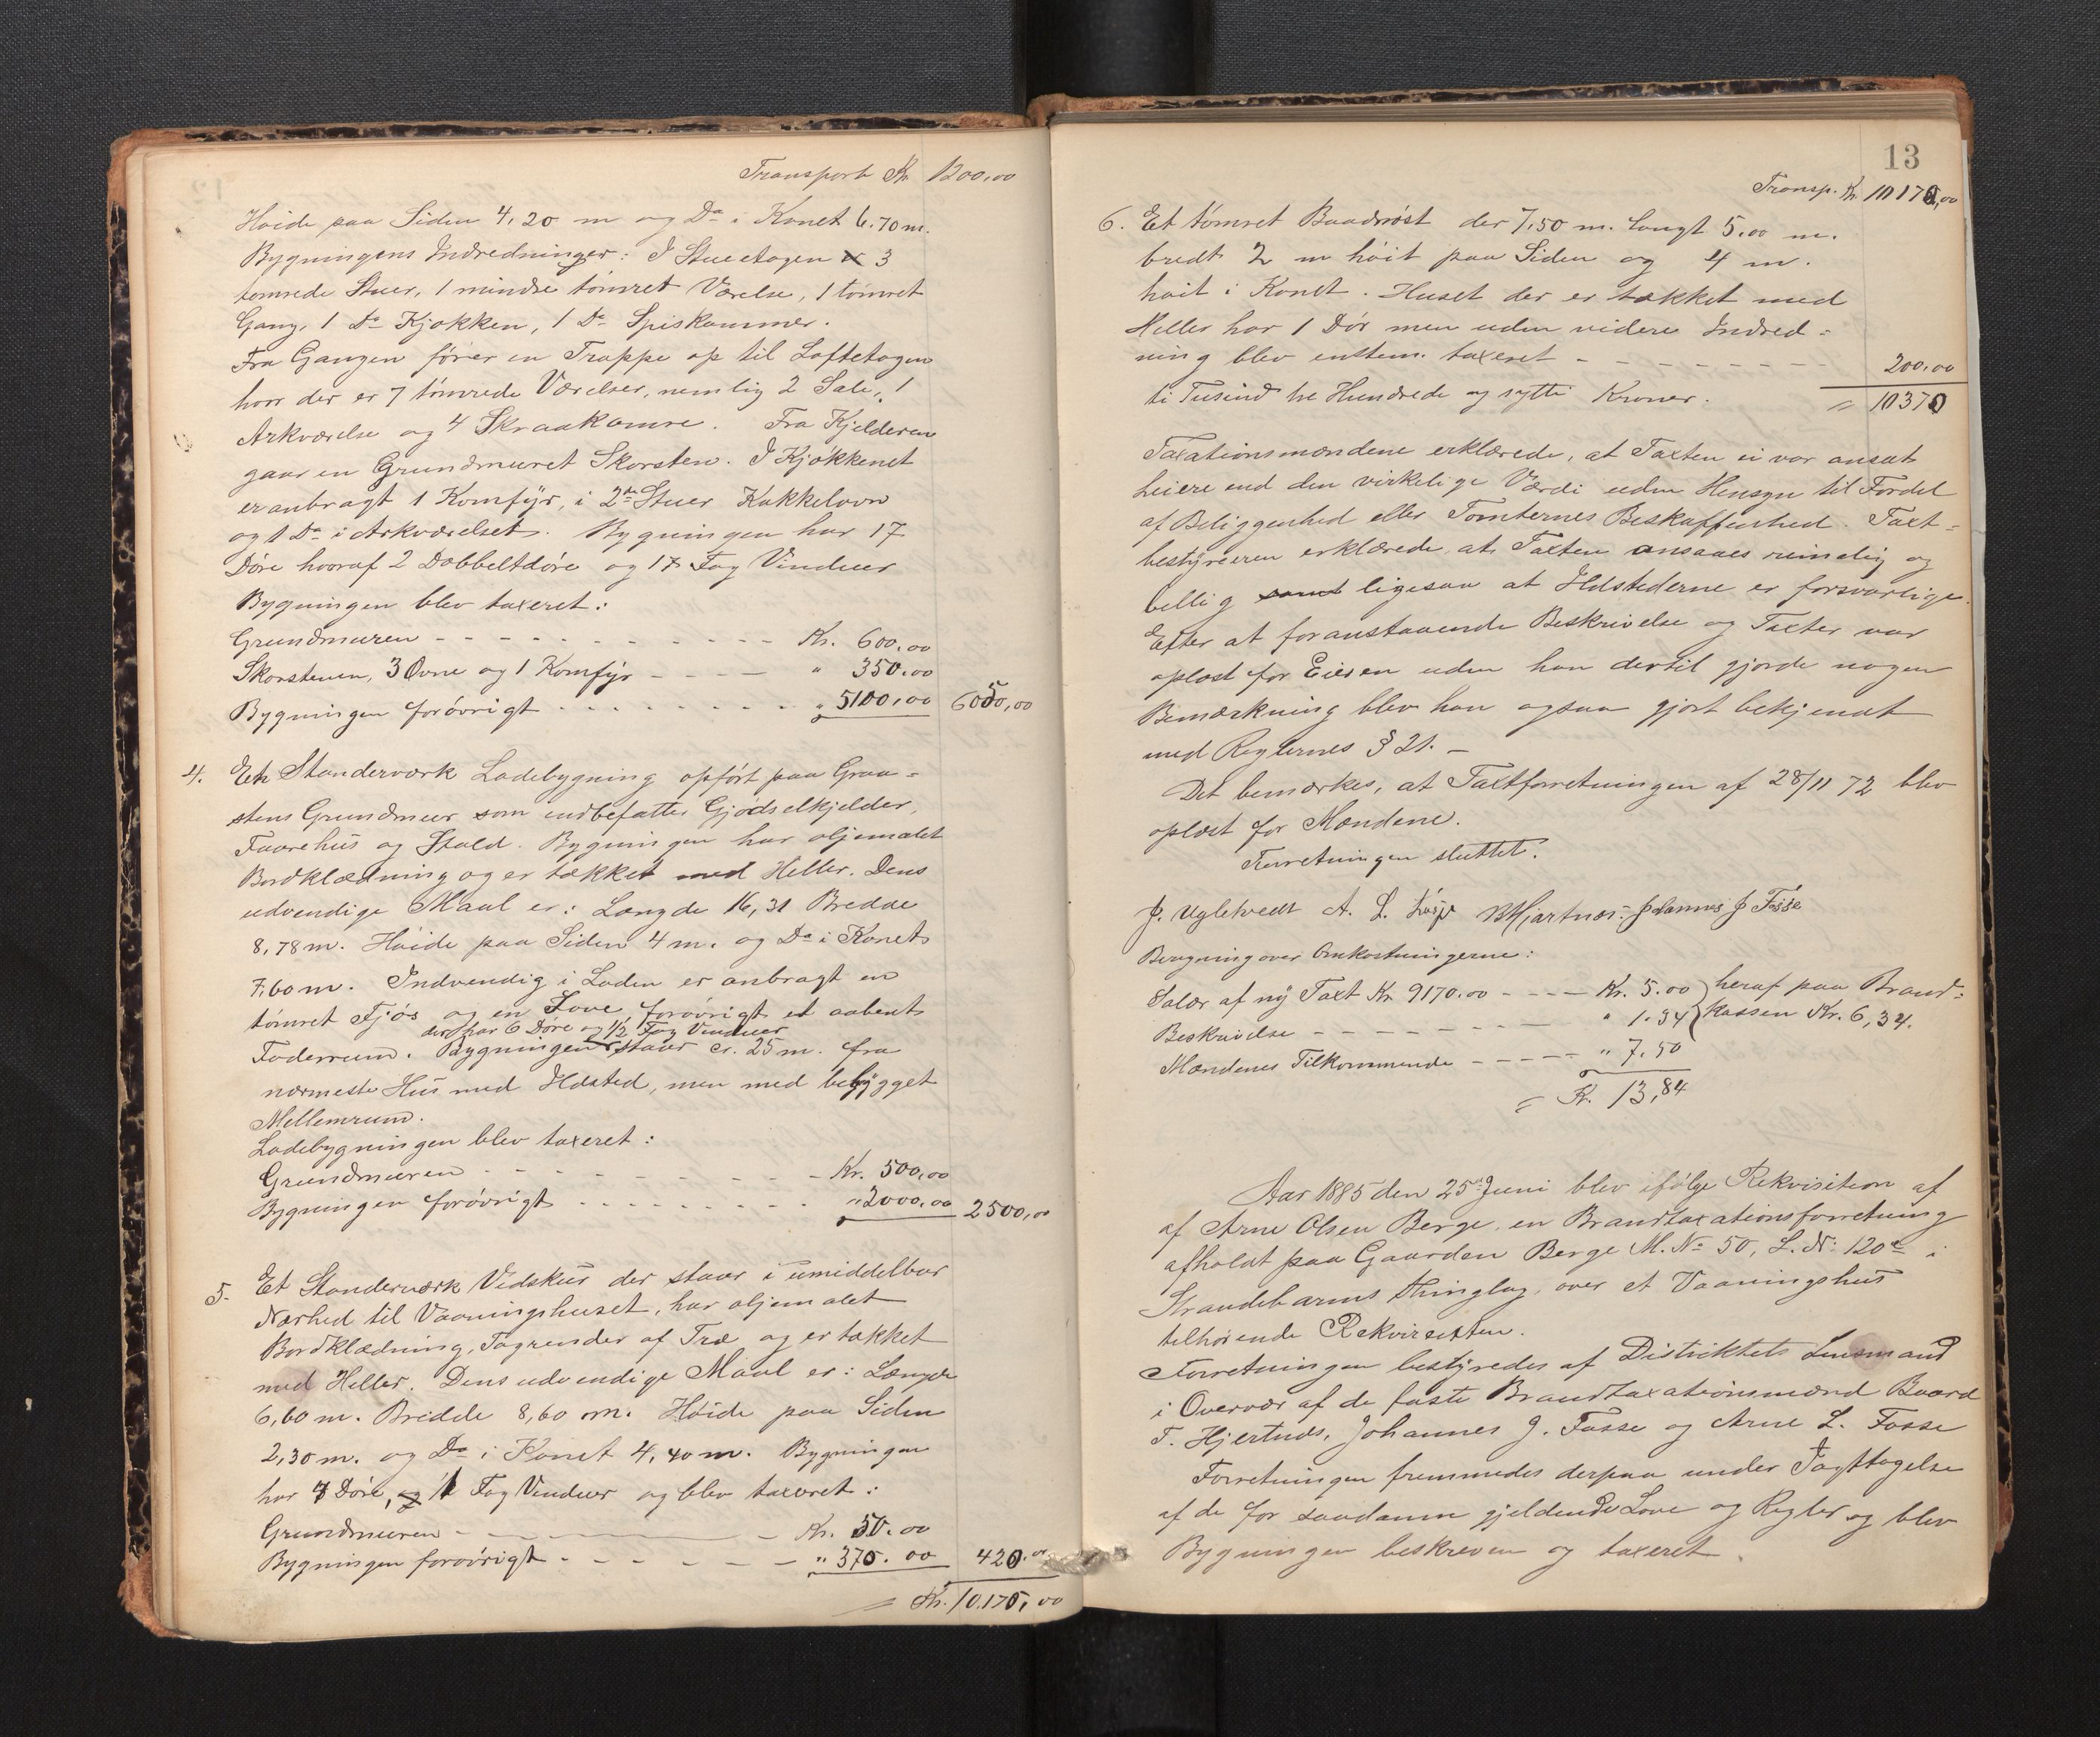 Transport Kr. 1200,00
Høide paa Siden 4,20 m og Do i Rønet 6,70 m.
Bygningens Indredninger: I Stueetagen 3
tømrede Stuer, 1 mindre tømret Værelse, 1 tømret
Gang, 1 Do Kjøkken, 1 Do Spiskammer.
Fra Gangen fører en Trappe op til Loftetagen
hvor der er 7 tømrede Værelser, nemlig 2 Sale, 1
Arkværelse og 4 Skraakamre. Fra Kjelderen
gaar en Grundmuret Skorsten. I Kjøkkenet
er anbragt 1 Komfyr, i 2de Stuer Kakkelovn
og 1 Do i Arkværelset. Bygningen har 17
Døre hvoraf 2 Dobbeltdøre og 17 Fag Vinduer
Bygningen blev taxeret:
Grundmuren - - - - Kr. 600,00
Skorstenen, 3 Ovne og 1 Komfyr - - - - " 350,00
Bygningen forøvrigt - - - - " 5100,00 6050,00
4. Et Standerværk Ladebygning opført paa Graa-
stens Grundmur som indbefatter Gjødselkjelder,
Faarehus og Stald. Bygningen har oljemalet
Bordklædning og er tækket med Heller. Dens
udvendige Maal er: Længde 16,31 Bredde
8,78 m. Høide paa Siden 4 m. og Do i Rønet
7,60 m. Indvendig i Laden er anbragt en
tømret Fjøs og en Love, forøvrigt et aabent
der har 6 Døre og 1½ Fag Vinduer
Foderrum. Bygningen staar cr. 25 m. fra
nærmeste Hus med Ildsted, men med bebygget
Mellemrum.
Ladebygningen blev taxeret:
Grundmuren - - - - Kr. 500,00
Bygningen forøvrigt - - - - " 2000,00 2500,00
5. Et Standerværk Vedskur der staar i umiddelbar
Nærhed til Vaaningshuset, har oljemalet
Bordklædning, Tagrender af Træ og er tækket
med Heller. Dens udvendige Maal er: Længde
6,60 m. Bredde 8,60 m. Høide paa Siden
2,30 m. og Do i Rønet 4,40 m. Bygningen
har 7 Døre, og 1 Fag Vinduer og blev taxeret:
Grundmuren - - - - Kr. 50,00
Bygningen forøvrigt - - - - " 370,00 420,00
= Kr. 10.170,00
13
Transp. Kr. 10170,00
6. Et tømret Baadnøst der 7,50 m. langt 5,00 m.
bredt 2 m høit paa Siden og 4 m.
høit i Rønet. Huset der er tækket med
Heller har 1 Dør men uden videre Indred-
ning blev enstem. taxeret - - - - 200,00
ti Tusind tre Hundrede og sytti Kroner. = 10370
Taxationsmændene erklærede, at Taxten ei var ansat
høiere end den virkelige Værdi uden Hensyn til Fordel
af Beliggenhed eller Tomternes Beskaffenhed. Taxt-
bestyreren erklærede at Taxten ansaaes rimelig og
billig samt ligesaa at Ildstederne er forsvarlige.
Efter at foranstaaende Beskrivelse og Taxter var
oplæst for Eieren uden han dertil gjorde nogen
Bemærkning blev han ogsaa gjort bekjendt
med Reglernes § 21. -
Det bemærkes, at Taxtforretningen af 28/11 72 blev
oplæst for Mændene.
Forretningen sluttet.
J. Ugletvedt A. L. BHjartnæs Johannes J Fosse
Beregning over Omkostningerne:
Salær af ny Taxt Kr. 9170.00 - - - - Kr. 5.00 } heraf paa Brand-
Beskrivelse - - - - " 1.34 } kassen Kr. 6,34.
Mændenes Tilkommende - - - - " 7.50
= Kr. 13,84
Aar 1885 den 25de Juni blev ifølge Rekvisition af
af Arne Olsen Berge, en Brandtaxationsforretning
afholdt paa Gaarden Berge M. No 50, L. No 120a i
Strandebarms Thinglag, over et Vaaningshus
tilhørende Rekvirenten.
Forretningen bestyredes af Distriktets Lensmand
i Overvær af de faste Brandtaxationsmænd Baard
T. Hjertnæs, Johannes J. Fosse og Arne L. Fosse
Forretningen fremmedes derpaa under Iagttagelse
af de for saadanne gjeldende Love og Regler og blev
Bygningen beskreven og taxeret.